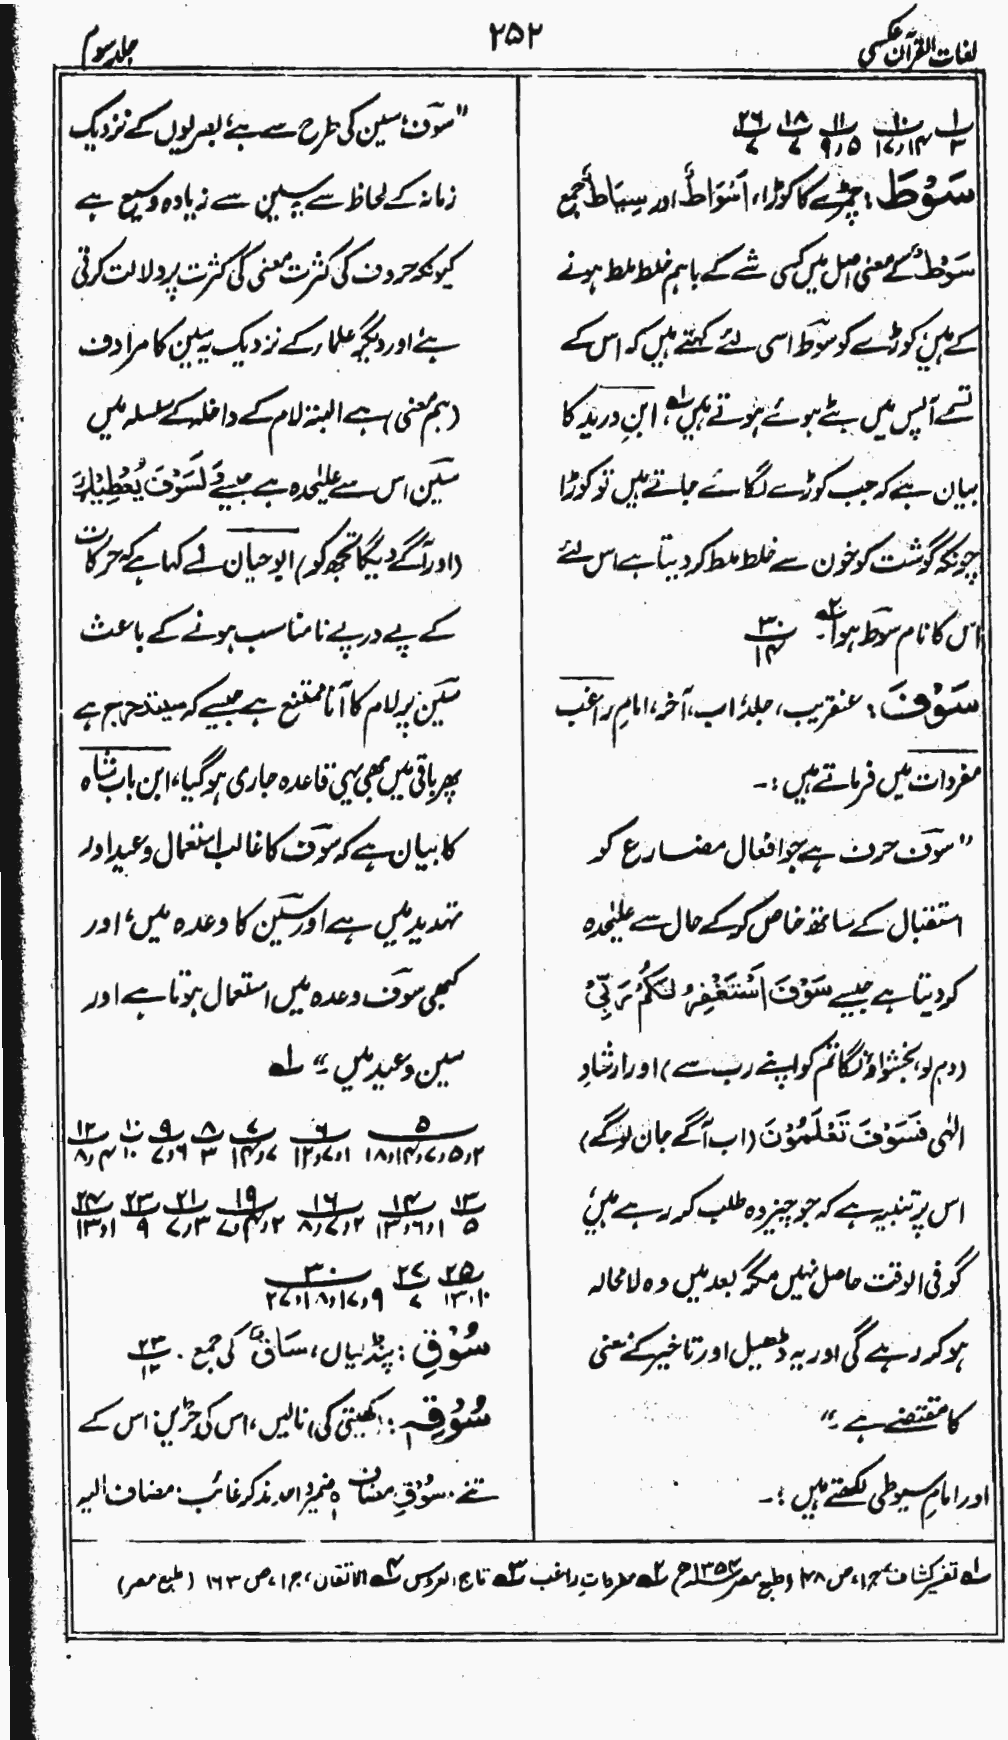 لغات القرآن عکسی
۲۵۲
جلد سوم
۱/۳ ۱۰/۱۴،۱۷ ۱۱/۵،۹ ۱۸/۷ ۲۶/۷
سَوْطَ: چمڑے کا کوڑا، اَسْوَاطٌ اور سِیَاطٌ جمع
سَوْطٌ کے معنی اصل میں کسی شے کے باہم خلط ملط ہونے
کے ہیں، کوڑے کو سَوْط اسی لئے کہتے ہیں کہ اس کے
تسمے آپس میں بٹے ہوئے ہوتے ہیں، ابن درید کا
بیان ہے کہ جب کوڑے لگائے جاتے ہیں تو کوڑا
چونکہ گوشت کو خون سے خلط ملط کر دیتا ہے اس لئے
اس کا نام سوط ہوا۔ ۳۰/۱۴
سَوْفَ: عنقریب، جلد، اب، آخر، امام راغب
مفردات میں فرماتے ہیں :۔
"سوف حرف ہے جو افعال مضارع کو
استقبال کے ساتھ خاص کر کے حال سے علیٰحدہ
کر دیتا ہے جیسے سَوْفَ اَسْتَغْفِرُ لَکُمْ رَبِّیْ
(دم لو، بخشواؤنگا تم کو اپنے رب سے) اور ارشادِ
الٰہی فَسَوْفَ تَعْلَمُوْنَ (اب آگے جان لوگے)
اس پر تنبیہ ہے کہ جو چیز وہ طلب کر رہے ہیں،
گو فی الوقت حاصل نہیں مگر بعد میں وہ لامحالہ
ہو کر رہے گی اور یہ ڈھیل اور تاخیر کے معنی
کا مقتضے ہے ۔"
اور امام سیوطی لکھتے ہیں :۔
"سوف، سین کی طرح سے ہے، بصریوں کے نزدیک
زمانہ کے لحاظ سے یہ سین سے زیادہ وسیع ہے
کیونکہ حروف کی کثرت معنی کی کثرت پر دلالت کرتی
ہے، اور دیگر علماء کے نزدیک یہ سین کا مرادف
(ہم معنی) ہے البتہ لام کے داخلہ کے سلسلہ میں
سین اس سے علیٰحدہ ہے جیسے وَلَسَوْفَ یُعْطِیْكَ
(اور آگے دیگا تجھ کو) ابو حیان نے کہا ہے کہ حرکات
کے پے در پے نامناسب ہونے کے باعث
سین پر لام کا آنا ممتنع ہے جیسے کہ سیتدحرج ہے
پھر باقی میں بھی یہی قاعدہ جاری ہوگیا، ابن باب شاہ
کا بیان ہے کہ سوف کا غالب استعمال وعید اور
تہدید میں ہے اور سین کا وعدہ میں، اور
کبھی سوف وعدہ میں استعمال ہوتا ہے اور
سین وعید میں ۔"
۵/۲،۵،۷،۱۴،۱۸ ۶/۱،۷،۱۲ ۷/۷،۱۴ ۸/۳ ۹/۶،۷ ۱۰/۱۰ ۱۲/۴،۸
۱۳/۵ ۱۴/۱،۶،۱۳ ۱۶/۲،۷،۸ ۱۹/۲،۴،۷ ۲۱/۳،۷ ۲۳/۹ ۲۴/۱،۱۳
۲۵/۱۰،۱۳ ۲۷/۷ ۳۰/۹،۱۷،۱۸،۲۷
سُوْقِ: پنڈلیاں، سَاقٌ کی جمع ۔ ۲۳/۱۲
سُوْقِہٖ: (کھیتی کی) نالیں، اس کی جڑیں، اس کے
تنے۔ سُوْقِ مضاف ہ ضمیر واحد مذکر غائب مضاف الیہ
۱ تفسیر کشاف ج ۲، ص ۴۸۰ (طبع مصر ۱۳۵۴ھ) ۲ مفردات راغب ۳ تاج العروس ۴ الاتقان، ج ۱، ص ۱۶۳ (طبع مصر)